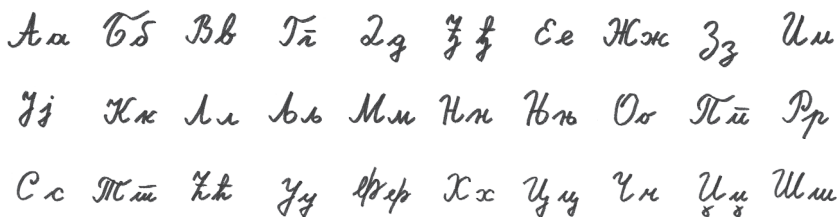 Аа Бб Вв Гг Дд Ђђ Ее Жж Зз Ии
Јј Кк Лл Љљ Мм Нн Њњ Оо Пп Рр
Сс Тт Ћћ Уу Фф Хх Цц Чч Џџ Шш